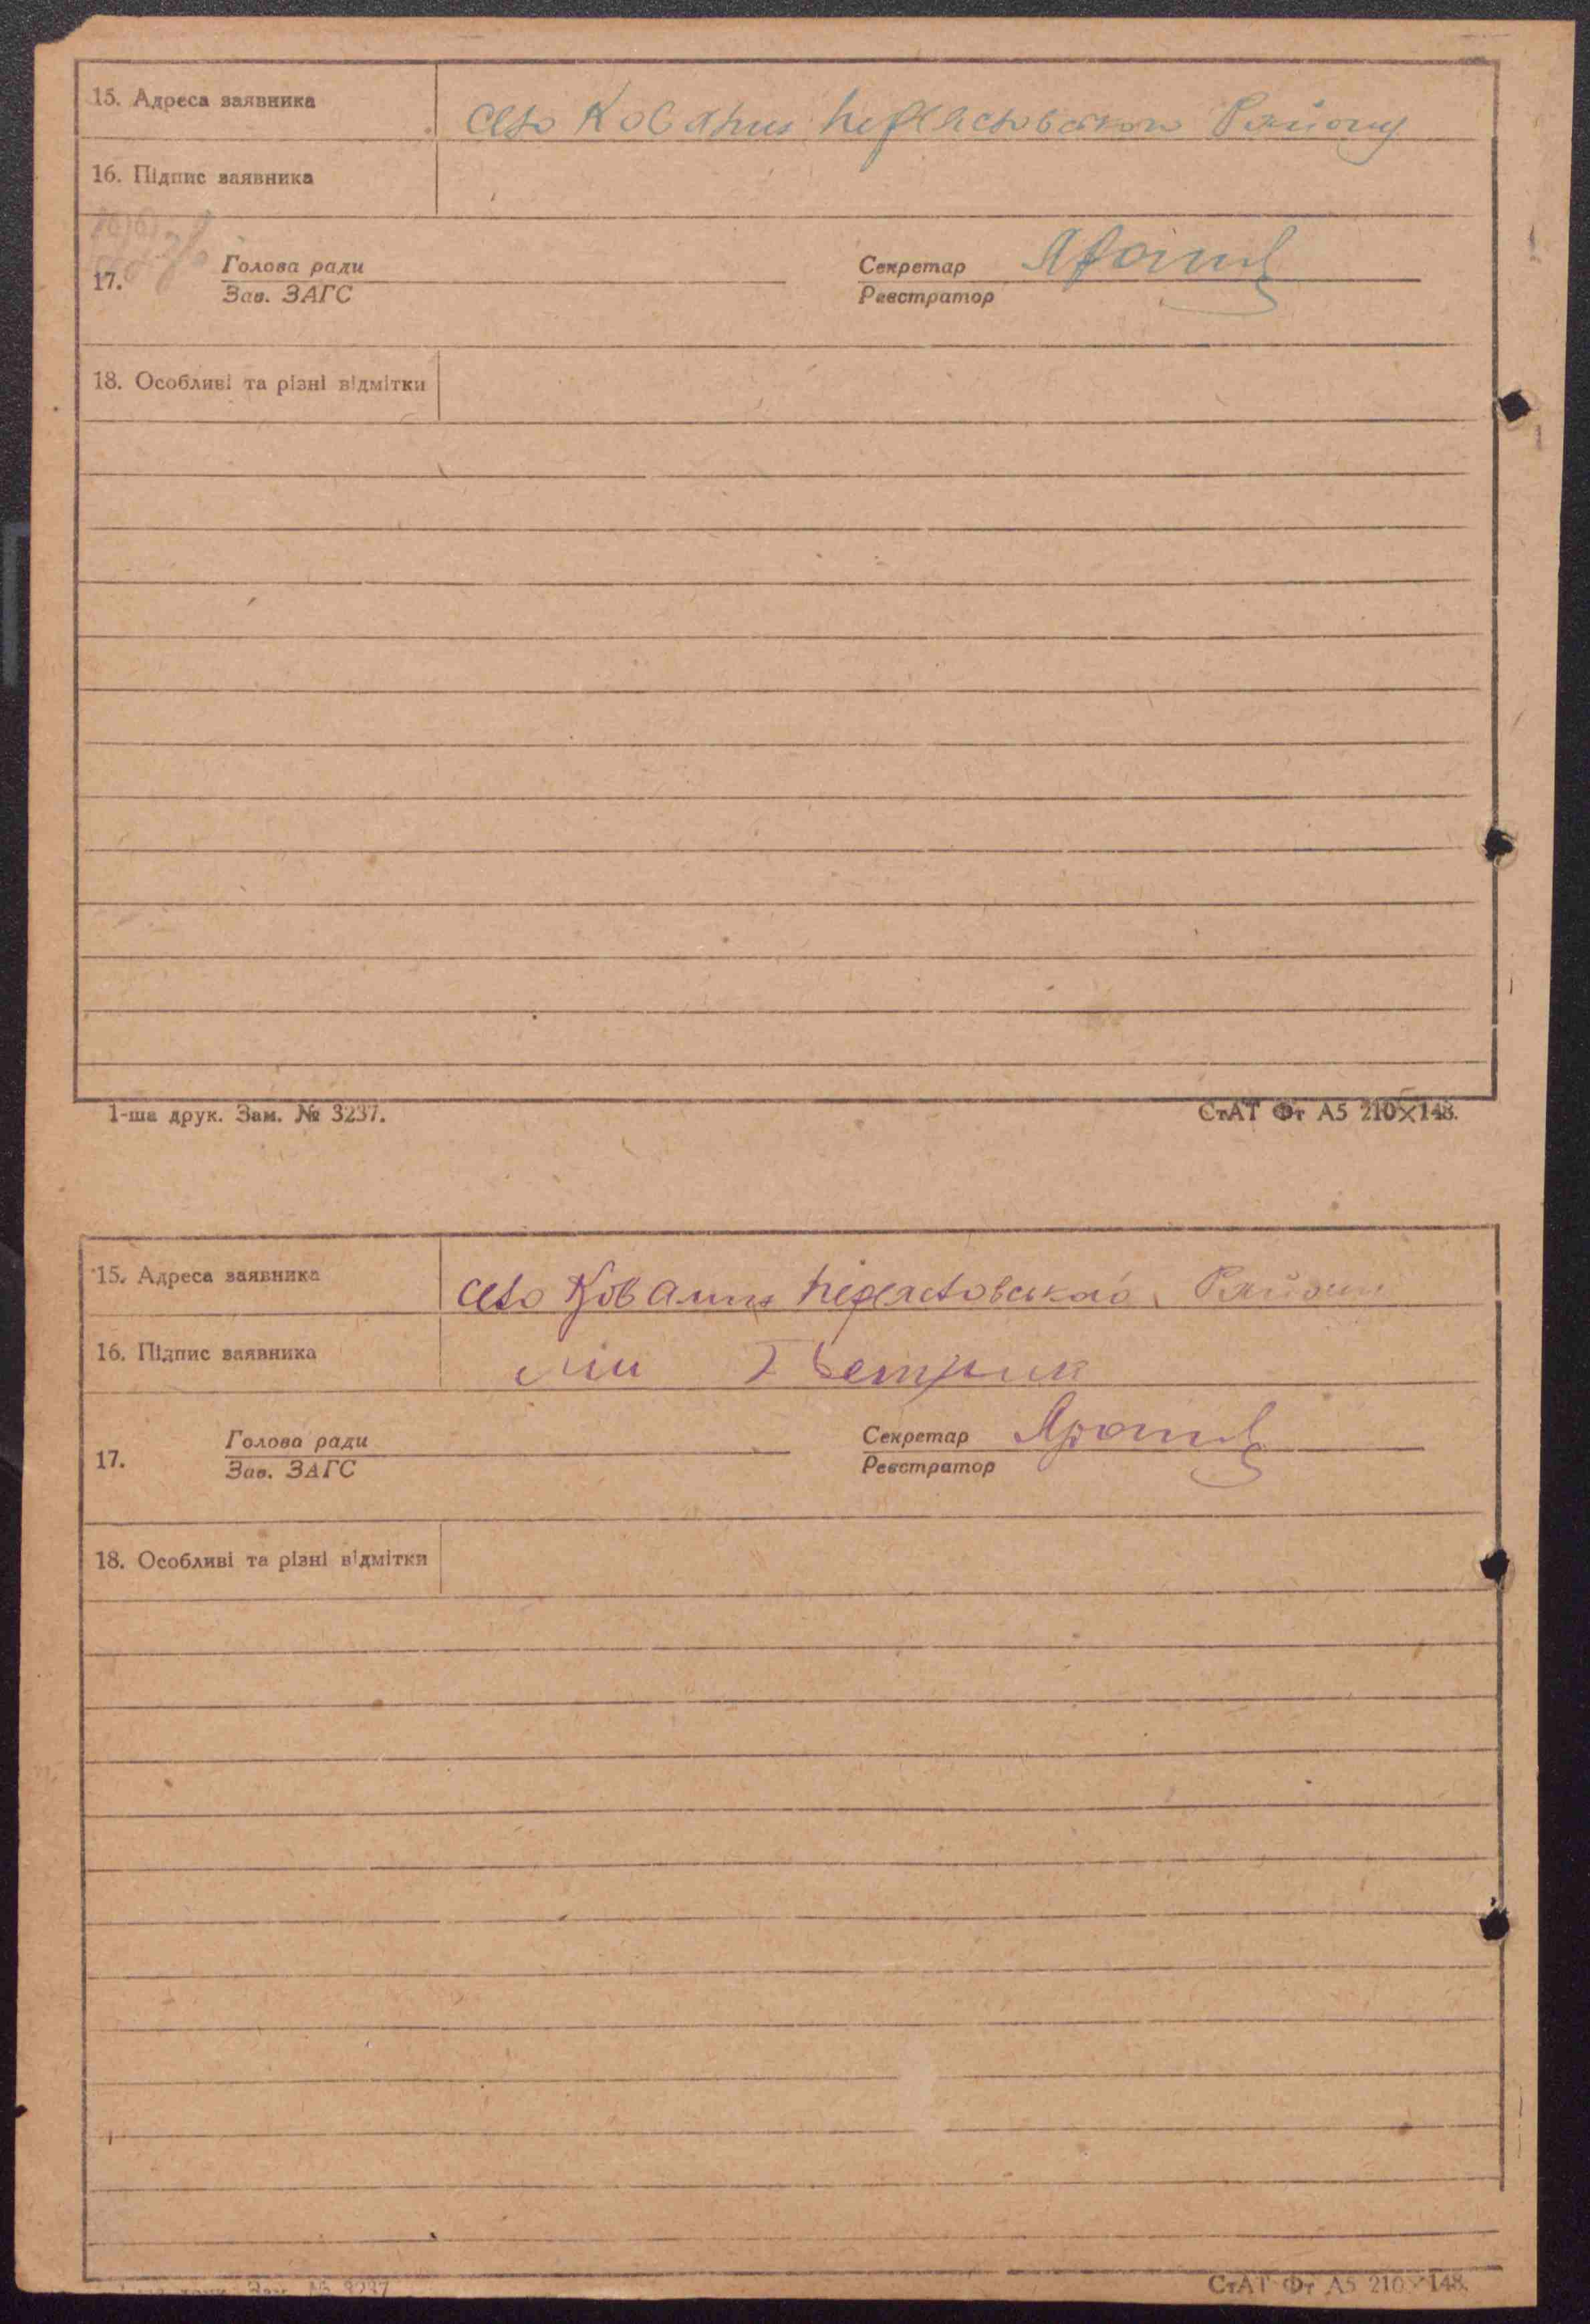 15. Адреса заявника село Ковалин Переяславського Району
16. Підпис заявника
17. Голова ради Секретар
Зав. ЗАГС Реєстратор
18. Особливі та різні відмітки
1-ша друк. Зам. № 3237. СтАТ Фт А5 210×148.
15. Адреса заявника село Ковалин Переяславського Району
16. Підпис заявника
17. Голова ради Секретар
Зав. ЗАГС Реєстратор
18. Особливі та різні відмітки
1-ша друк. Зам. № 3237 СтАТ Фт А5 210×148.